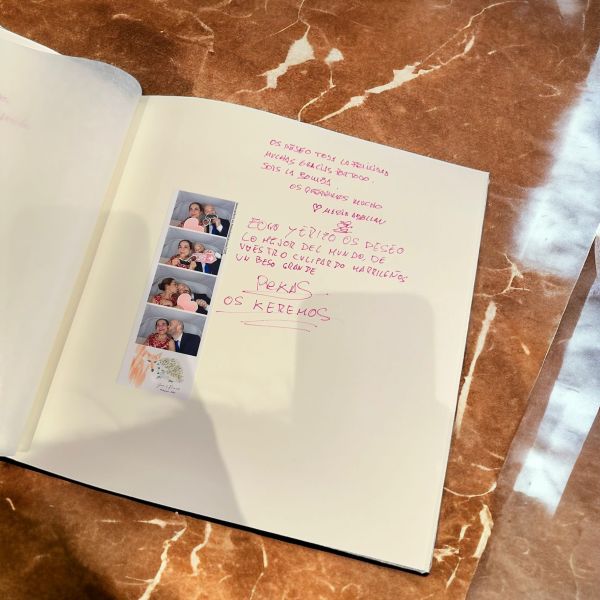 OS DESEO TODA LA FELICIDAD
MUCHAS GRACIAS POR TODO.
SOIS LA BOMBA.
OS QUEREMOS MUCHO
MARÍA
Y OS DESEO
LO MEJOR DEL MUNDO DE
VUESTRO CULIPARDO MARRILEÑOS
UN BESO GRANDE
PEKAS
OS KEREMOS